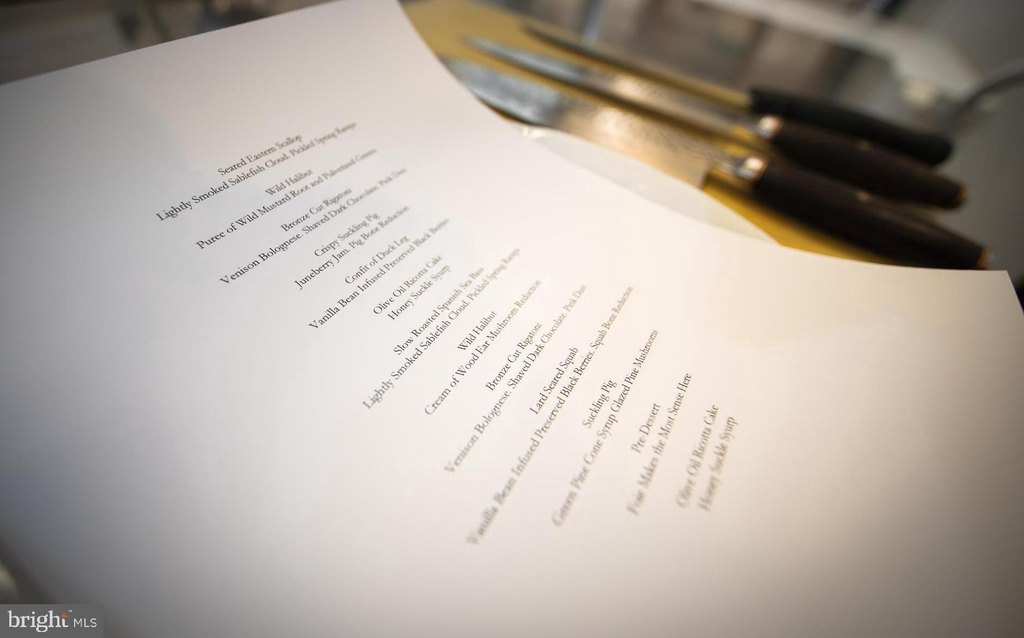 Seared Eastern Scallop
Lightly Smoked Sablefish Cloud. Pickled Spring Ramps
Wild Halibut
Puree of Wild Mustard Root and Pulverized Greens
Bronze Cut Rigatoni
Venison Bolognese. Shaved Dark Chocolate. Pink Dust
Crispy Suckling Pig
Juneberry Jam. Pig Bone Reduction
Confit of Duck Leg
Vanilla Bean Infused Preserved Black Berries
Olive Oil Ricotta Cake
Honey Suckle Syurp
Slow Roasted Spanish Sea Bass
Lightly Smoked Sablefish Cloud. Pickled Spring Ramps
Wild Halibut
Cream of Wood Ear Mushroom Reduction
Bronze Cut Rigatoni
Venison Bolognese. Shaved Dark Chocolate. Pink Dust
Lard Seared Squab
Vanilla Bean Infused Preserved Black Berries. Squab Bone Reduction
Suckling Pig
Green Pine Cone Syrup Glazed Pine Mushrooms
Pre-Dessert
Four Makes the Most Sense Here
Olive Oil Ricotta Cake
Honey Suckle Syurp
bright MLS